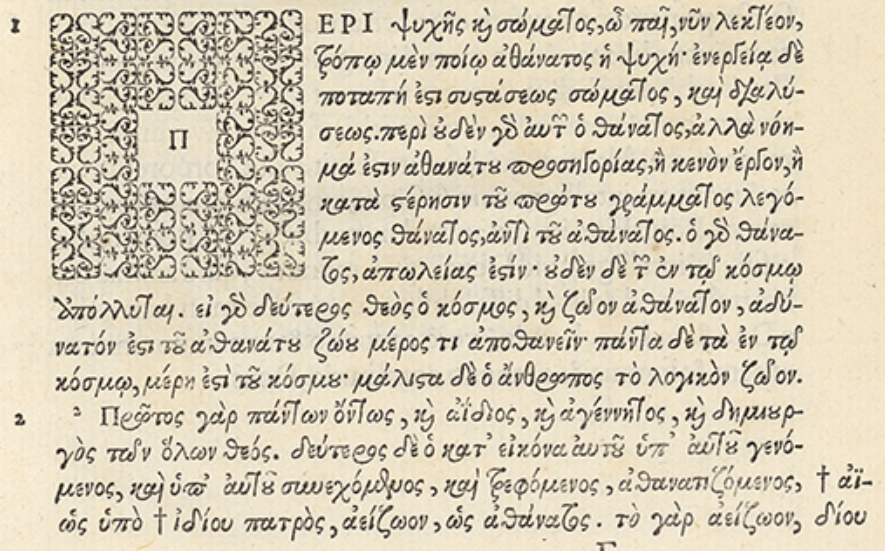 1 ΠΕΡΙ ψυχῆς καὶ σώματος, ὦ παῖ, νῦν λεκτέον,
τρόπῳ μὲν ποίῳ ἀθάνατος ἡ ψυχή· ἐνεργεία δὲ
ποταπή ἐστι συστάσεως σώματος, καὶ διαλύ-
σεως. περὶ οὐδὲν γὰρ αὐτῶν ὁ θάνατος, ἀλλὰ νόη-
μά ἐστιν ἀθανάτου προσηγορίας, ἢ κενὸν ἔργον, ἢ
κατὰ στέρησιν τοῦ πρώτου γράμματος λεγό-
μενος θάνατος, ἀντὶ τοῦ ἀθάνατος. ὁ γὰρ θάνα-
τος, ἀπωλείας ἐστίν· οὐδὲν δὲ τῶν ἐν τῷ κόσμῳ
ἀπόλλυται. εἰ γὰρ δεύτερος θεὸς ὁ κόσμος, καὶ ζῶον ἀθάνατον, ἀδύ-
νατόν ἐστι τοῦ ἀθανάτου ζώου μέρος τι ἀποθανεῖν· πάντα δὲ τὰ ἐν τῷ
κόσμῳ, μέρη ἐστὶ τοῦ κόσμου· μάλιστα δὲ ὁ ἄνθρωπος τὸ λογικὸν ζῶον.
2 ² Πρῶτος γὰρ πάντων ὄντως, καὶ ἀΐδιος, καὶ ἀγέννητος, καὶ δημιουρ-
γὸς τῶν ὅλων θεός. δεύτερος δὲ ὁ κατ' εἰκόνα αὐτοῦ ὑπ' αὐτοῦ γενό-
μενος, καὶ ὑπ' αὐτοῦ συνεχόμενος, καὶ τρεφόμενος, ἀθανατιζόμενος, † ἀϊ-
ὡς ὑπὸ † ἰδίου πατρὸς, ἀείζωον, ὡς ἀθάνατος. τὸ γὰρ ἀείζωον, δίου